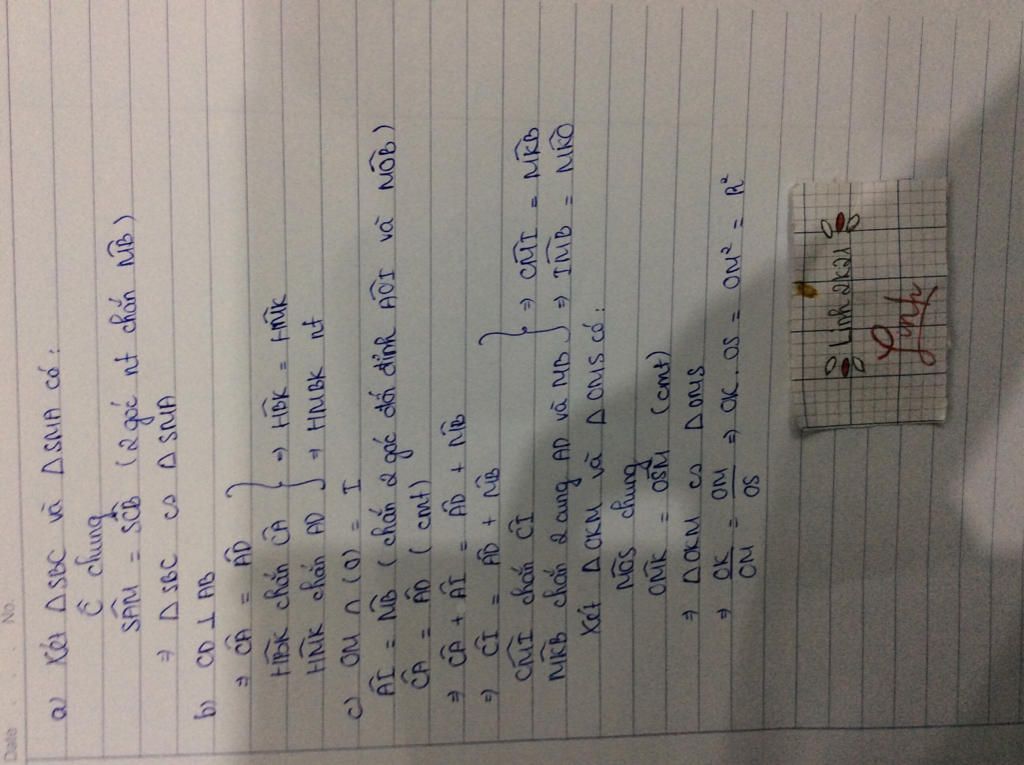 Date . . . No.
a) Xét ΔSBC và ΔSMA có:
Ŝ chung
SÂM = SĈB (2 góc nt chắn M͡B)
⇒ ΔSBC ∽ ΔSMA
b) CD ⊥ AB
⇒ C͡A = A͡D
HB̂K chắn C͡A } ⇒ HB̂K = HM̂K
HM̂K chắn A͡D ⇒ HMBK nt
c) OM ∩ (O) = I
A͡I = M͡B (chắn 2 góc đối đỉnh AÔI và MÔB)
C͡A = A͡D (cmt)
⇒ C͡A + A͡I = A͡D + M͡B
⇒ C͡I = A͡D + M͡B
CM̂I chắn C͡I } ⇒ CM̂I = MK̂B
MK̂B chắn 2 cung AD và MB ⇒ IM̂B = MK̂O
Xét ΔOKM và ΔOMS có:
MÔS chung
OM̂K = OŜM (cmt)
⇒ ΔOKM ∽ ΔOMS
⇒ OK/OM = OM/OS ⇒ OK.OS = OM² = R²
Linh2k21
Linh